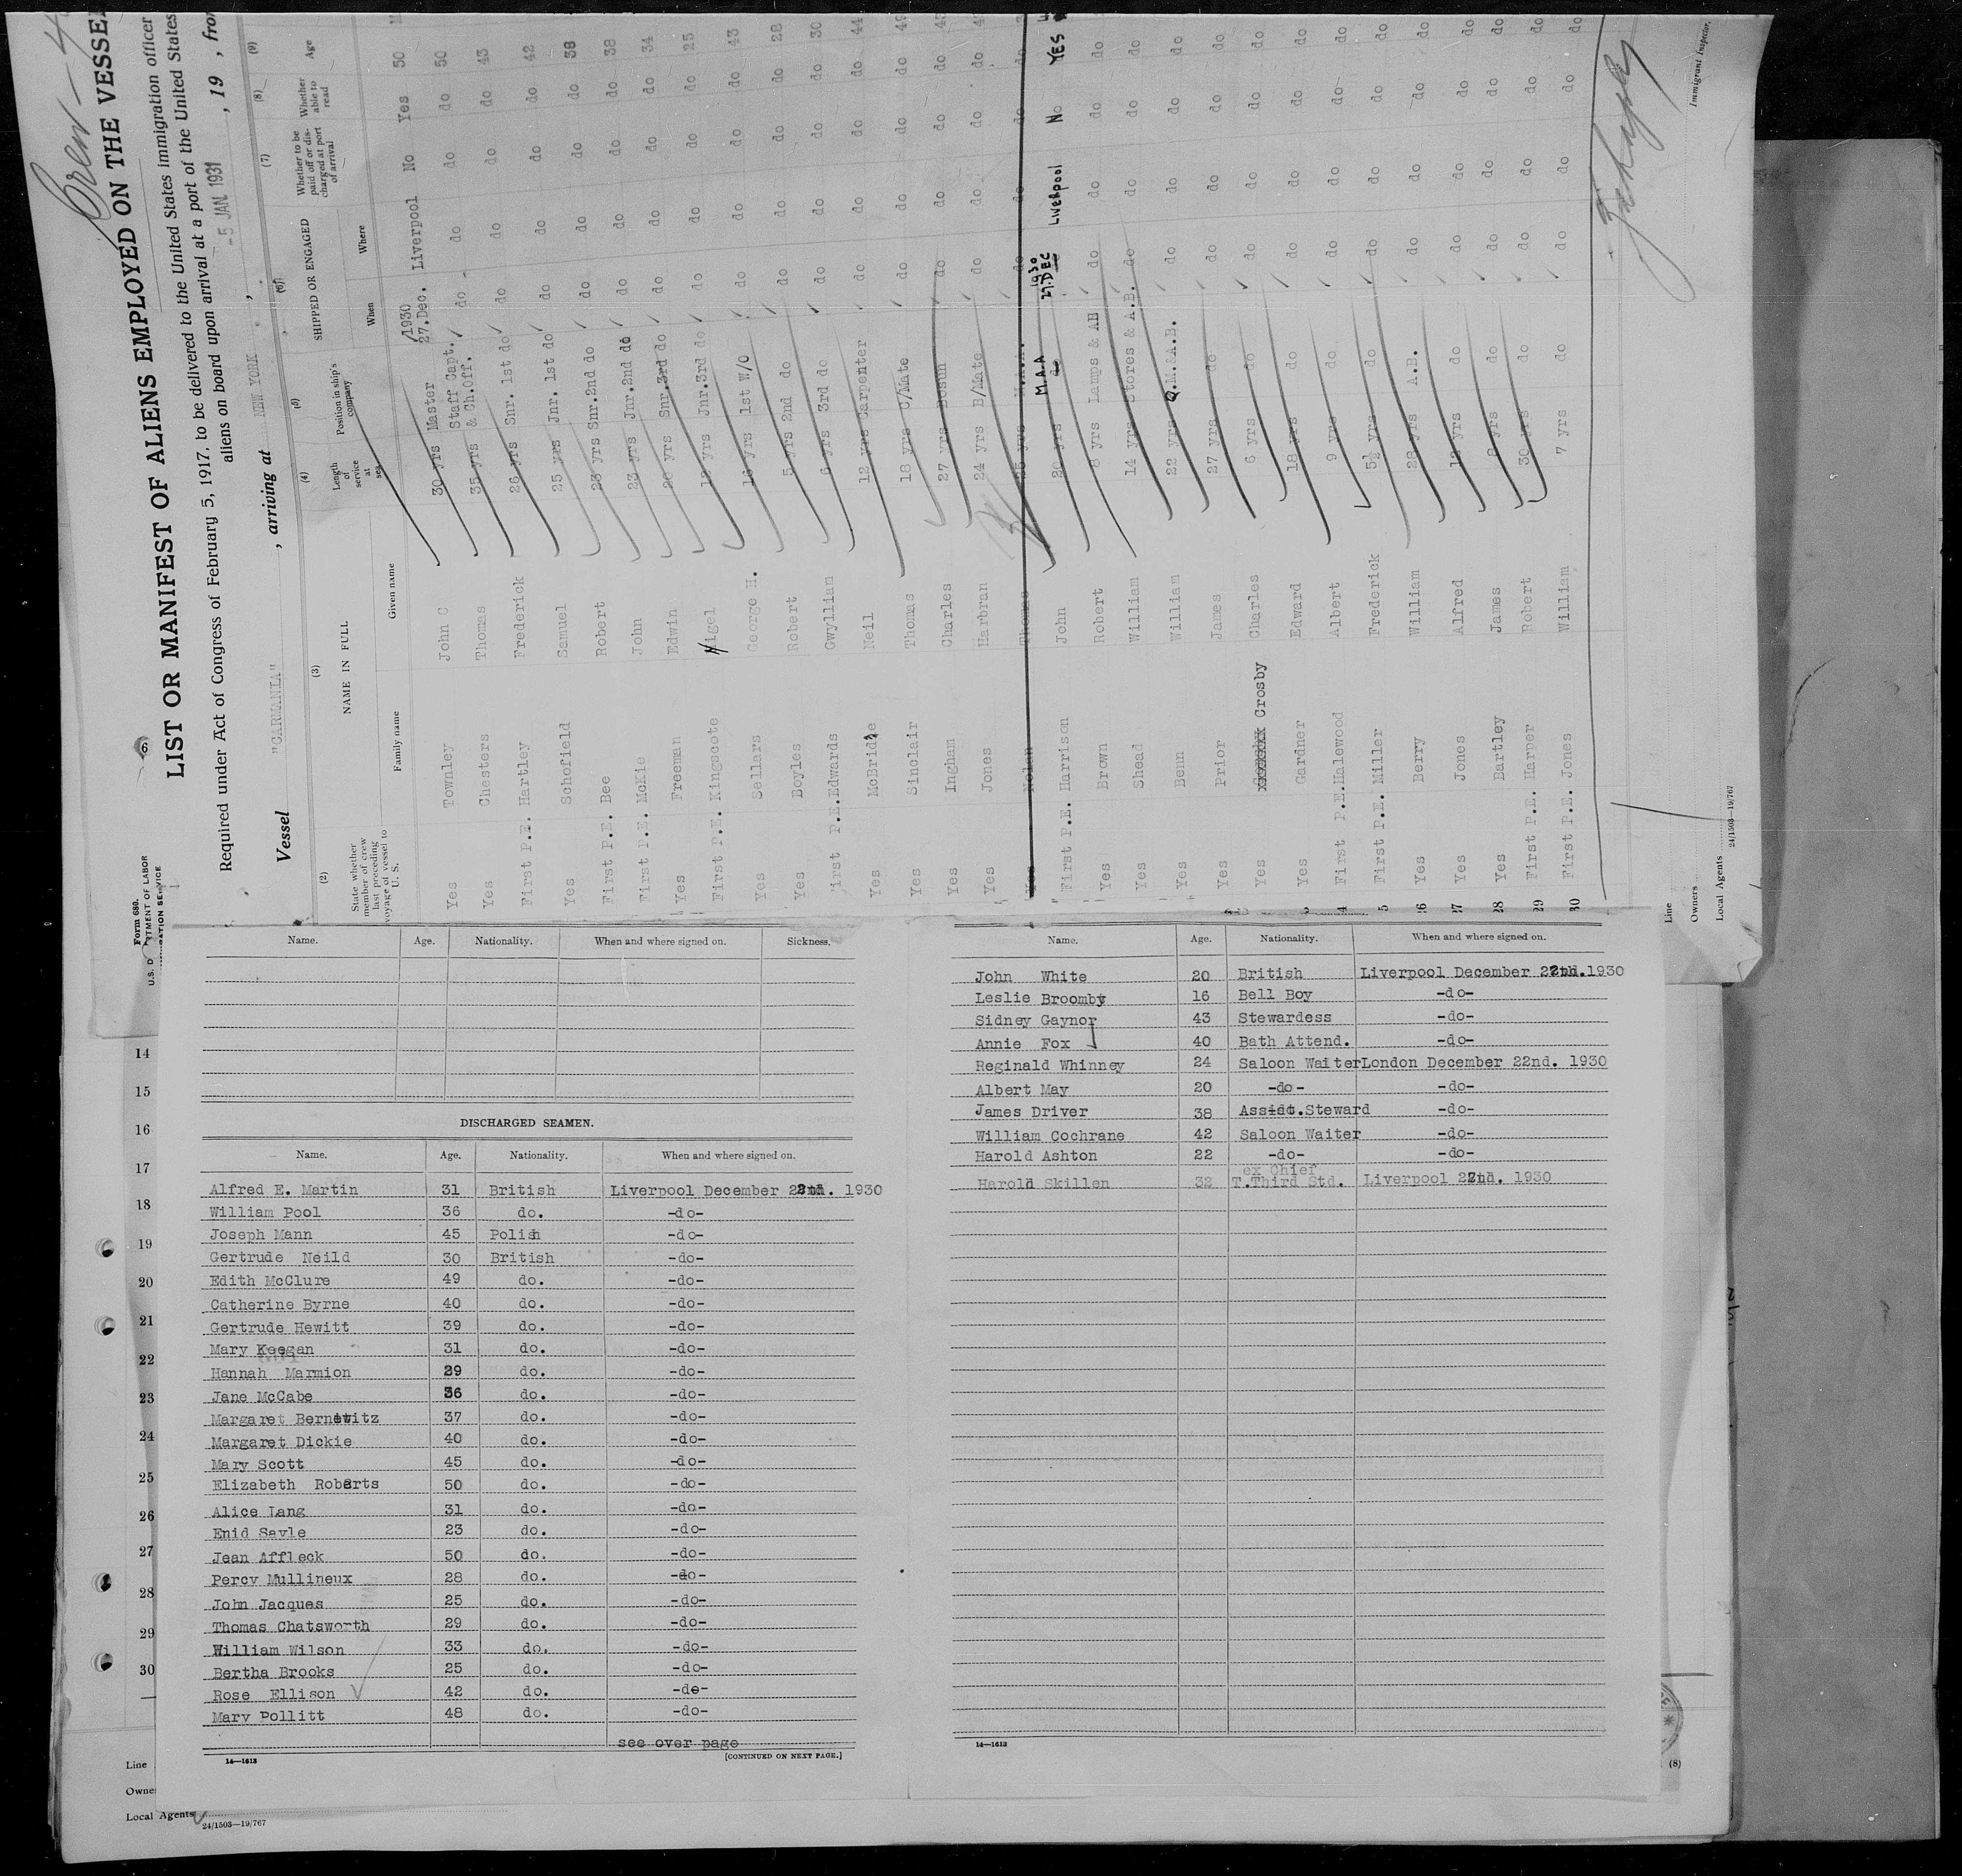 Crew
LIST OR MANIFEST OF ALIENS EMPLOYED ON THE VESSEL
Required under Act of Congress of February 5, 1917, to be delivered to the United States immigration officer
aliens on board upon arrival at a port of the United States
Vessel "CARMANIA" , arriving at NEW YORK , -5 JAN 1931 , 19 , from
Form 680.
U.S. D TMENT OF LABOR
ATION SERVICE
6
(2) (3) (4) (5) (6) (7) (8) (9)
State whether member of crew last preceding voyage of vessel to U. S.
NAME IN FULL
Family name Given name
Length of service at sea
Position in ship's company
SHIPPED OR ENGAGED
When Where
Whether to be paid off or discharged at port of arrival
Whether able to read
Age
Yes Townley John C 30 yrs Master 1930 27.Dec. Liverpool No Yes 50
Yes Chesters Thomas 35 yrs Staff Capt. & Ch.Off. do do do do 50
First P.E. Hartley Frederick 26 yrs Snr. 1st do do do do do 43
Yes Schofield Samuel 25 yrs Jnr. 1st do do do do do 42
First P.E. Bee Robert 23 yrs Snr.2nd do do do do do 38
First P.E. McKie John 23 yrs Jnr.2nd do do do do do 38
Yes Freeman Edwin 20 yrs Snr.3rd do do do do do 34
First P.E. Kingscote Nigel 12 yrs Jnr.3rd do do do do do 25
Yes Sellars George H. 16 yrs 1st W/O do do do do 43
Yes Boyles Robert 5 yrs 2nd do do do do do 28
First P.E. Edwards Gwyllian 6 yrs 3rd do do do do do 30
Yes McBride Neil 12 yrs Carpenter do do do do 44
Yes Sinclair Thomas 18 yrs C/Mate do do do do 49
Yes Ingham Charles 27 yrs Bosun do do do do
Yes Jones Harbran 24 yrs B/Mate do do do do
Yes Nolan Thomas 35 yrs M.A.A. do do do do
First P.E. Harrison John 20 yrs M.A.A do 1930 27.DEC Liverpool No YES
Yes Brown Robert 8 yrs Lamps & AB do do do do
Yes Shead William 14 yrs Stores & A.B. do do do do
Yes Benn William 22 yrs Q.M.&A.B. do do do do
Yes Prior James 27 yrs do do do do do
Yes Crosby Charles 6 yrs do do do do do
Yes Gardner Edward 18 yrs do do do do do
First P.E. Halewood Albert 9 yrs do do do do do
First P.E. Miller Frederick 5½ yrs do do do do do
Yes Berry William 28 yrs A.B. do do do do
Yes Jones Alfred 12 yrs do do do do do
Yes Bartley James 8 yrs do do do do do
First P.E. Harper Robert 30 yrs do do do do do
First P.E. Jones William 7 yrs do do do do do
Immigrant Inspector.
Line
Owners
Local Agents
24/1503—19/767
Name. Age. Nationality. When and where signed on. Sickness.
DISCHARGED SEAMEN.
Name. Age. Nationality. When and where signed on.
Alfred E. Martin 31 British Liverpool December 22nd. 1930
William Pool 36 do. -do-
Joseph Mann 45 Polish -do-
Gertrude Neild 30 British -do-
Edith McClure 49 do. -do-
Catherine Byrne 40 do. -do-
Gertrude Hewitt 39 do. -do-
Mary Keegan 31 do. -do-
Hannah Marmion 29 do. -do-
Jane McCabe 36 do. -do-
Margaret Bernwitz 37 do. -do-
Margaret Dickie 40 do. -do-
Mary Scott 45 do. -do-
Elizabeth Roberts 50 do. -do-
Alice Lang 31 do. -do-
Enid Sayle 23 do. -do-
Jean Affleck 50 do. -do-
Percy Mullineux 28 do. -do-
John Jacques 25 do. -do-
Thomas Chatsworth 29 do. -do-
William Wilson 33 do. -do-
Bertha Brooks 25 do. -do-
Rose Ellison 42 do. -de-
Mary Pollitt 48 do. -do-
see over page
14—1613 [CONTINUED ON NEXT PAGE.]
Name. Age. Nationality. When and where signed on.
John White 20 British Liverpool December 22nd. 1930
Leslie Broomby 16 Bell Boy -do-
Sidney Gaynor 43 Stewardess -do-
Annie Fox 40 Bath Attend. -do-
Reginald Whinney 24 Saloon Waiter London December 22nd. 1930
Albert May 20 -do- -do-
James Driver 38 Assist.Steward -do-
William Cochrane 42 Saloon Waiter -do-
Harold Ashton 22 -do- -do-
Harold Skillen 32 ex Chief T.Third Std. Liverpool 22nd. 1930
14—1613
14
15
16
17
18
19
20
21
22
23
24
25
26
27
28
29
30
Line
Owne
Local Agents
24/1503—19/767
(8)